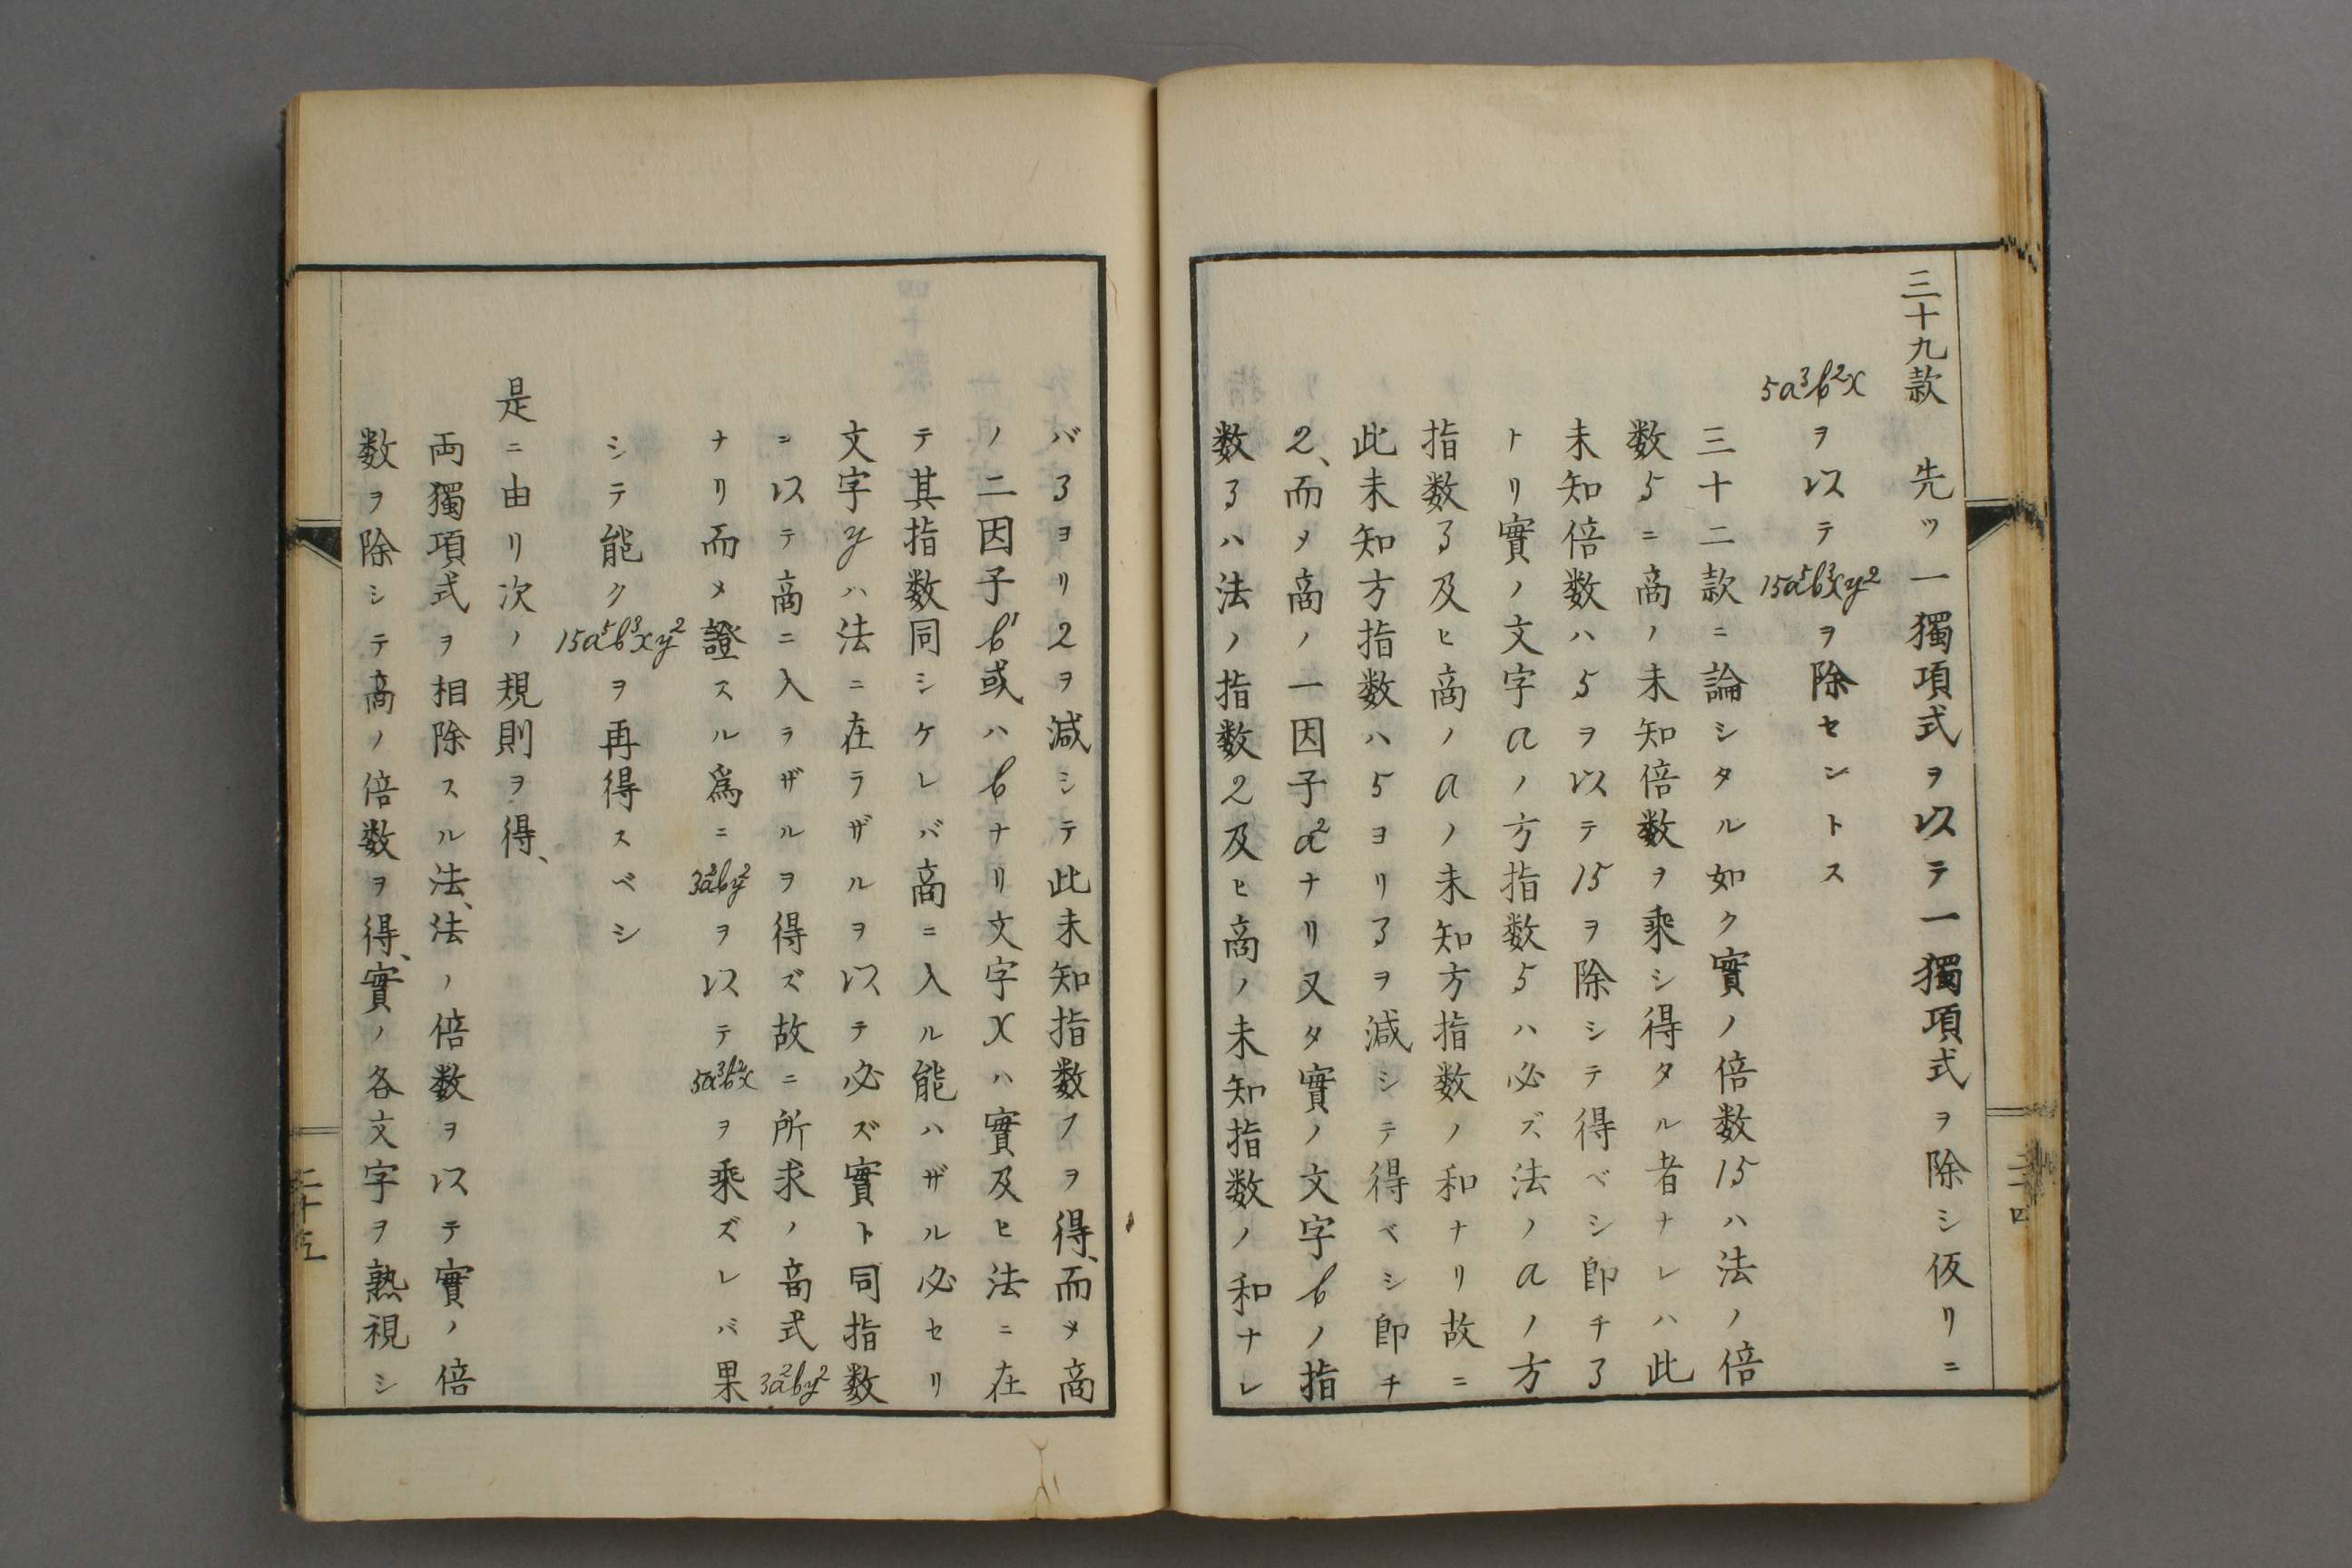 三十九款 先ッ一獨項式ヲ以テ一獨項式ヲ除シ仮リニ
5a³b²xヲ以テ15a⁵b³xy²ヲ除セントス
三十二款ニ論シタル如ク實ノ倍数15ハ法ノ倍
数5ニ商ノ未知倍数ヲ乗シ得タル者ナレハ此
未知倍数ハ5ヲ以テ15ヲ除シテ得ベシ即チ3
トリ實ノ文字aノ方指数5ハ必ズ法ノaノ方
指数3及ヒ商ノaノ未知方指数ノ和ナリ故ニ
此未知方指数ハ5ヨリ3ヲ減シテ得ベシ即チ
2、而メ商ノ一因子a²ナリ又タ實ノ文字bノ指
数3ハ法ノ指数2及ヒ商ノ未知指数ノ和ナレ
二十四
バ3ヨリ2ヲ減シテ此未知指数1ヲ得、而メ商
ノ二因子b¹或ハbナリ文字xハ實及ヒ法ニ在
テ其指数同シケレバ商ニ入ル能ハザル必セリ
文字yハ法ニ在ラザルヲ以テ必ズ實ト同指数
ニ以テ商ニ入ラザルヲ得ズ故ニ所求ノ商式3a²by²
ナリ而メ證スル爲ニ3a²by²ヲ以テ5a³b²xヲ乗ズレバ果
シテ能ク15a⁵b³xy²ヲ再得スベシ
是ニ由リ次ノ規則ヲ得、
両獨項式ヲ相除スル法、法ノ倍数ヲ以テ實ノ倍
数ヲ除シテ商ノ倍数ヲ得、實ノ各文字ヲ熟視シ
二十五